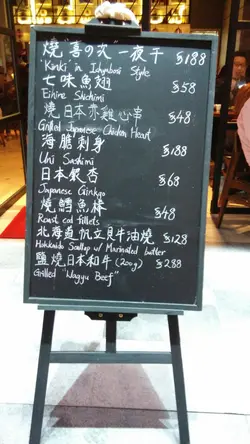 燒"喜の次"一夜干 $188
'Kinki' in Ichyaboni Style
七味魚翅 $58
Eihire Shichimi
燒日本赤雞心串 $48
Grilled Japanese Chicken Heart
海膽刺身 $188
Uni Sashimi
日本銀杏 $68
Japanese Ginkgo
燒鱈魚棒 $48
Roast cod fillets
北海道帆立貝牛油燒 $128
Hokkaido Scallop w/ Marinated butter
鹽燒日本和牛(200g) $288
Grilled "Wagyu Beef"